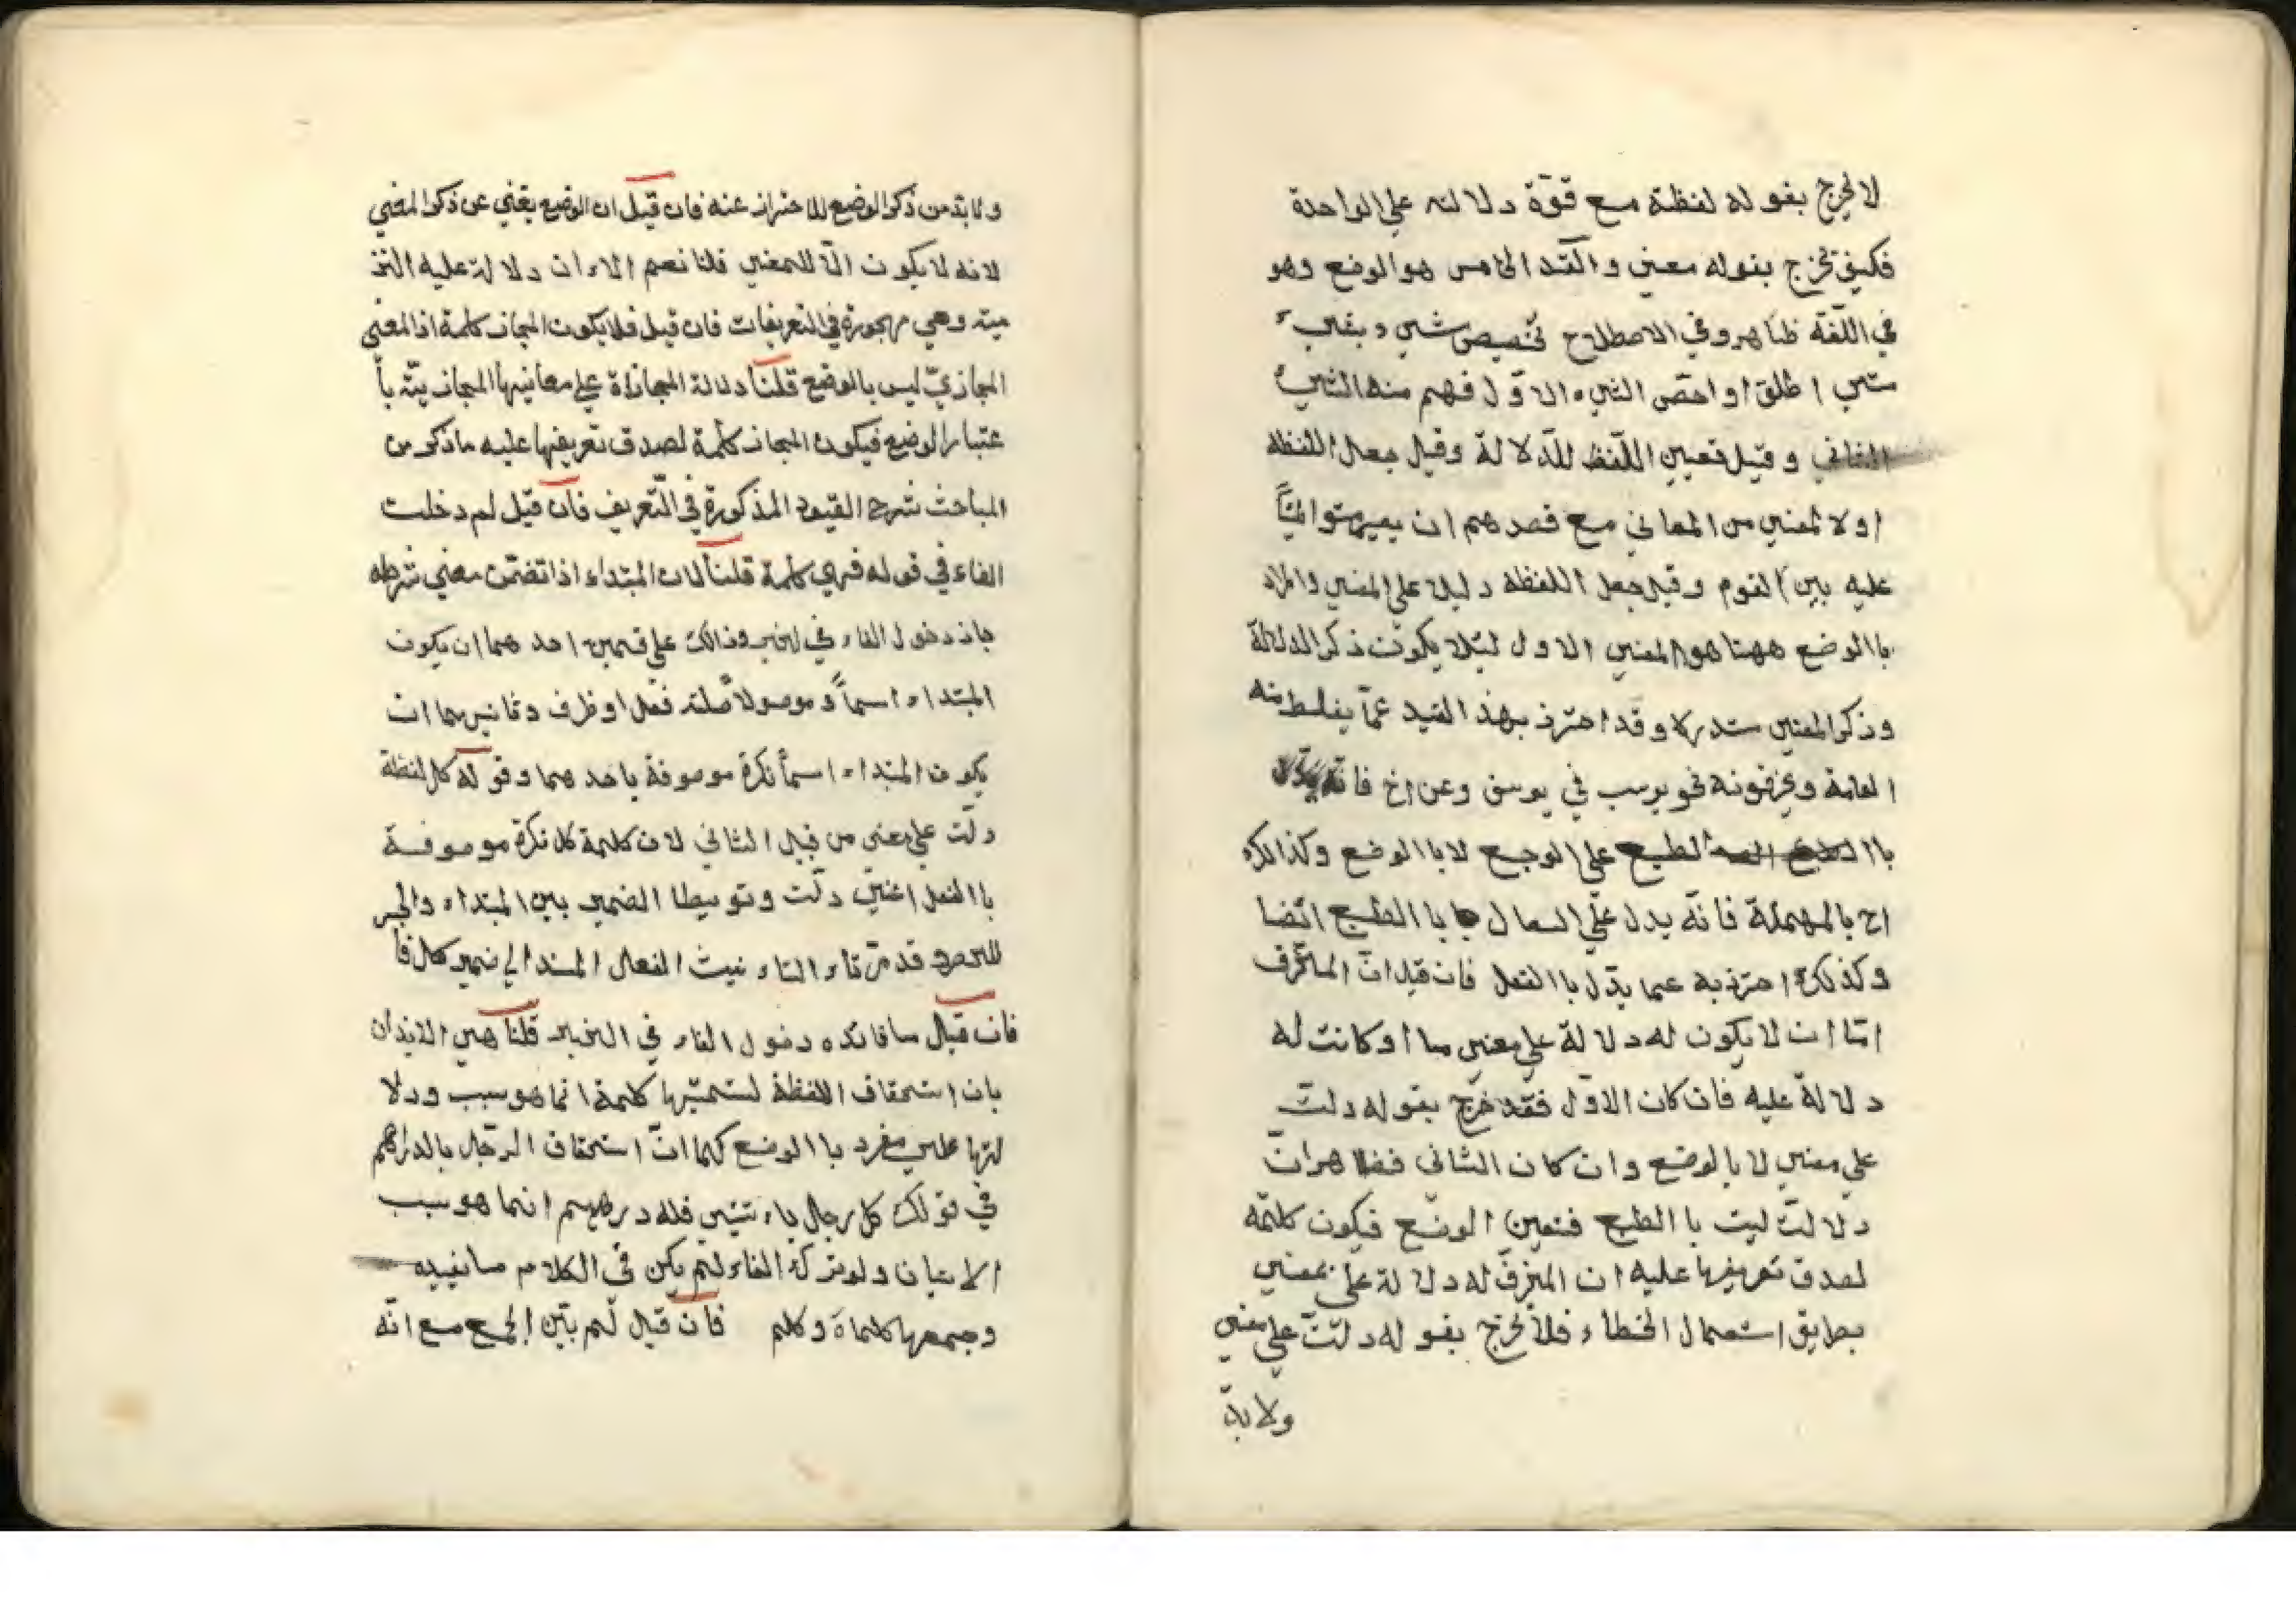 لا يخرج بقوله لفظة مع قوّة دلالته على الواحدة
فكيف تخرج بقوله معنى والقيد الخامس هو الوضع وهو
في اللّغة ظاهر وفي الاصطلاح تخصيص شيء بشيء
متى اطلق او احسّ الشيء الاوّل فهم منه الشيء
الثاني وقيل تعيين اللّفظ للدّلالة وقيل جعل اللفظة
اولا لمعنى من المعاني مع قصدهم ان يصير متواليًا
عليه بين القوم وقيل جعل اللفظة دليلا على المعنى والمراد
باالوضع ههنا هو المعنى الاول لئلا يكون ذكر الدلالة
وذكر المعنى مستدركا وقد احترز بهذ القيد عمّا يغلط منه
العامة ويحرّفونه نحو يوسب في يوسف وعن اخ فانّه يدلّ
باالطبع على الوجع لا باالوضع وكذالك
اح بالمهملة فانّه يدل على السعال باالطبع ايضا
وكذلك احترز به عما يدّل باالفعل فان قيل انّ المحرّف
امّا ان لا يكون له دلالة على معنى ما او كانت له
دلالة عليه فان كان الاوّل فقد خرج بقوله دلّت
على معنى لا بالوضع وان كان الثاني فظاهر انّ
دلالتّ ليت باالطبع فتعين الوضع فيكون كلمّة
لصدق تعريفها عليه ان المحرّف له دلالة على معنى
بطريق استعمال الخطاء فلا يخرج بقوله دلّت على معنى
ولا بدّ
ولا بدّ من ذكر الوضع للاحتراز عنه فان قيل ان الوضع يغني عن ذكر المعنى
لانه لا يكون الّا للمعنى قلنا نعم الاان دلالة عليه التز
ميته وهي مهجورة في التعريفات فان قيل فلا يكون المجاز كلمة اذ المعنى
المجازيّ ليس بالوضع قلنا دلالة المجازاة على معانيها المجازيّة بأ
عتبار الوضع فيكون المجاز كلمة لصدق تعريفها عليه ما ذكر من
المباحث شرح القيود المذكورة في التّعريف فان قيل لم دخلت
الفاء في قوله فهي كلمة قلنا لان المبتداء اذا تضمّن معنى شرطه
جاز دخول الفاء في الخبر وذالك على قسمين احدهما ان يكون
المبتداء اسماً وموصولا صلته فعل او ظرف وثانيهما ان
يكون المبتداء اسمأ نكرة موصوفة باحدهما وقوله كل لفظة
دلّت على معنى من قبيل الثاني لان كلمة كل نكرة موصوفة
باالفعل اعنيّ دلّت وتوسيطا الضمير بين المبتداء والخبر
للحصر وقد مّر تاء التاء نيث الفعال المسند الى ضمير كل فأ
فان قيل ما فائده دخول الفاء في الخبر قلنا هي الايذان
بان استحقاف اللفظة لتسميّتها كلمة انما هو سبب ودلا
لتها على مفرد باالوضع كما انّ استحقاف الرّجل بالدراهم
في قولك كل رجل جاء تنيني فله درهم انما هو سبب
الاتيان ولو ترك الفاء لم يكن في الكلام ما نفيده
وجمعها كلماة وكلم فان قيل لم بيّن الجمع مع انّه